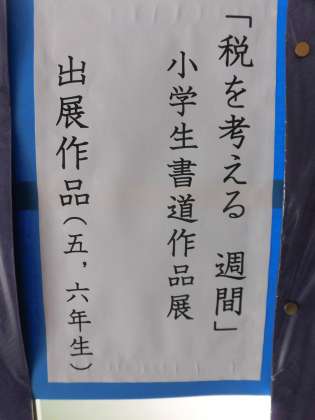 「税を考える 週間」
小学生書道作品展
出展作品(五,六年生)